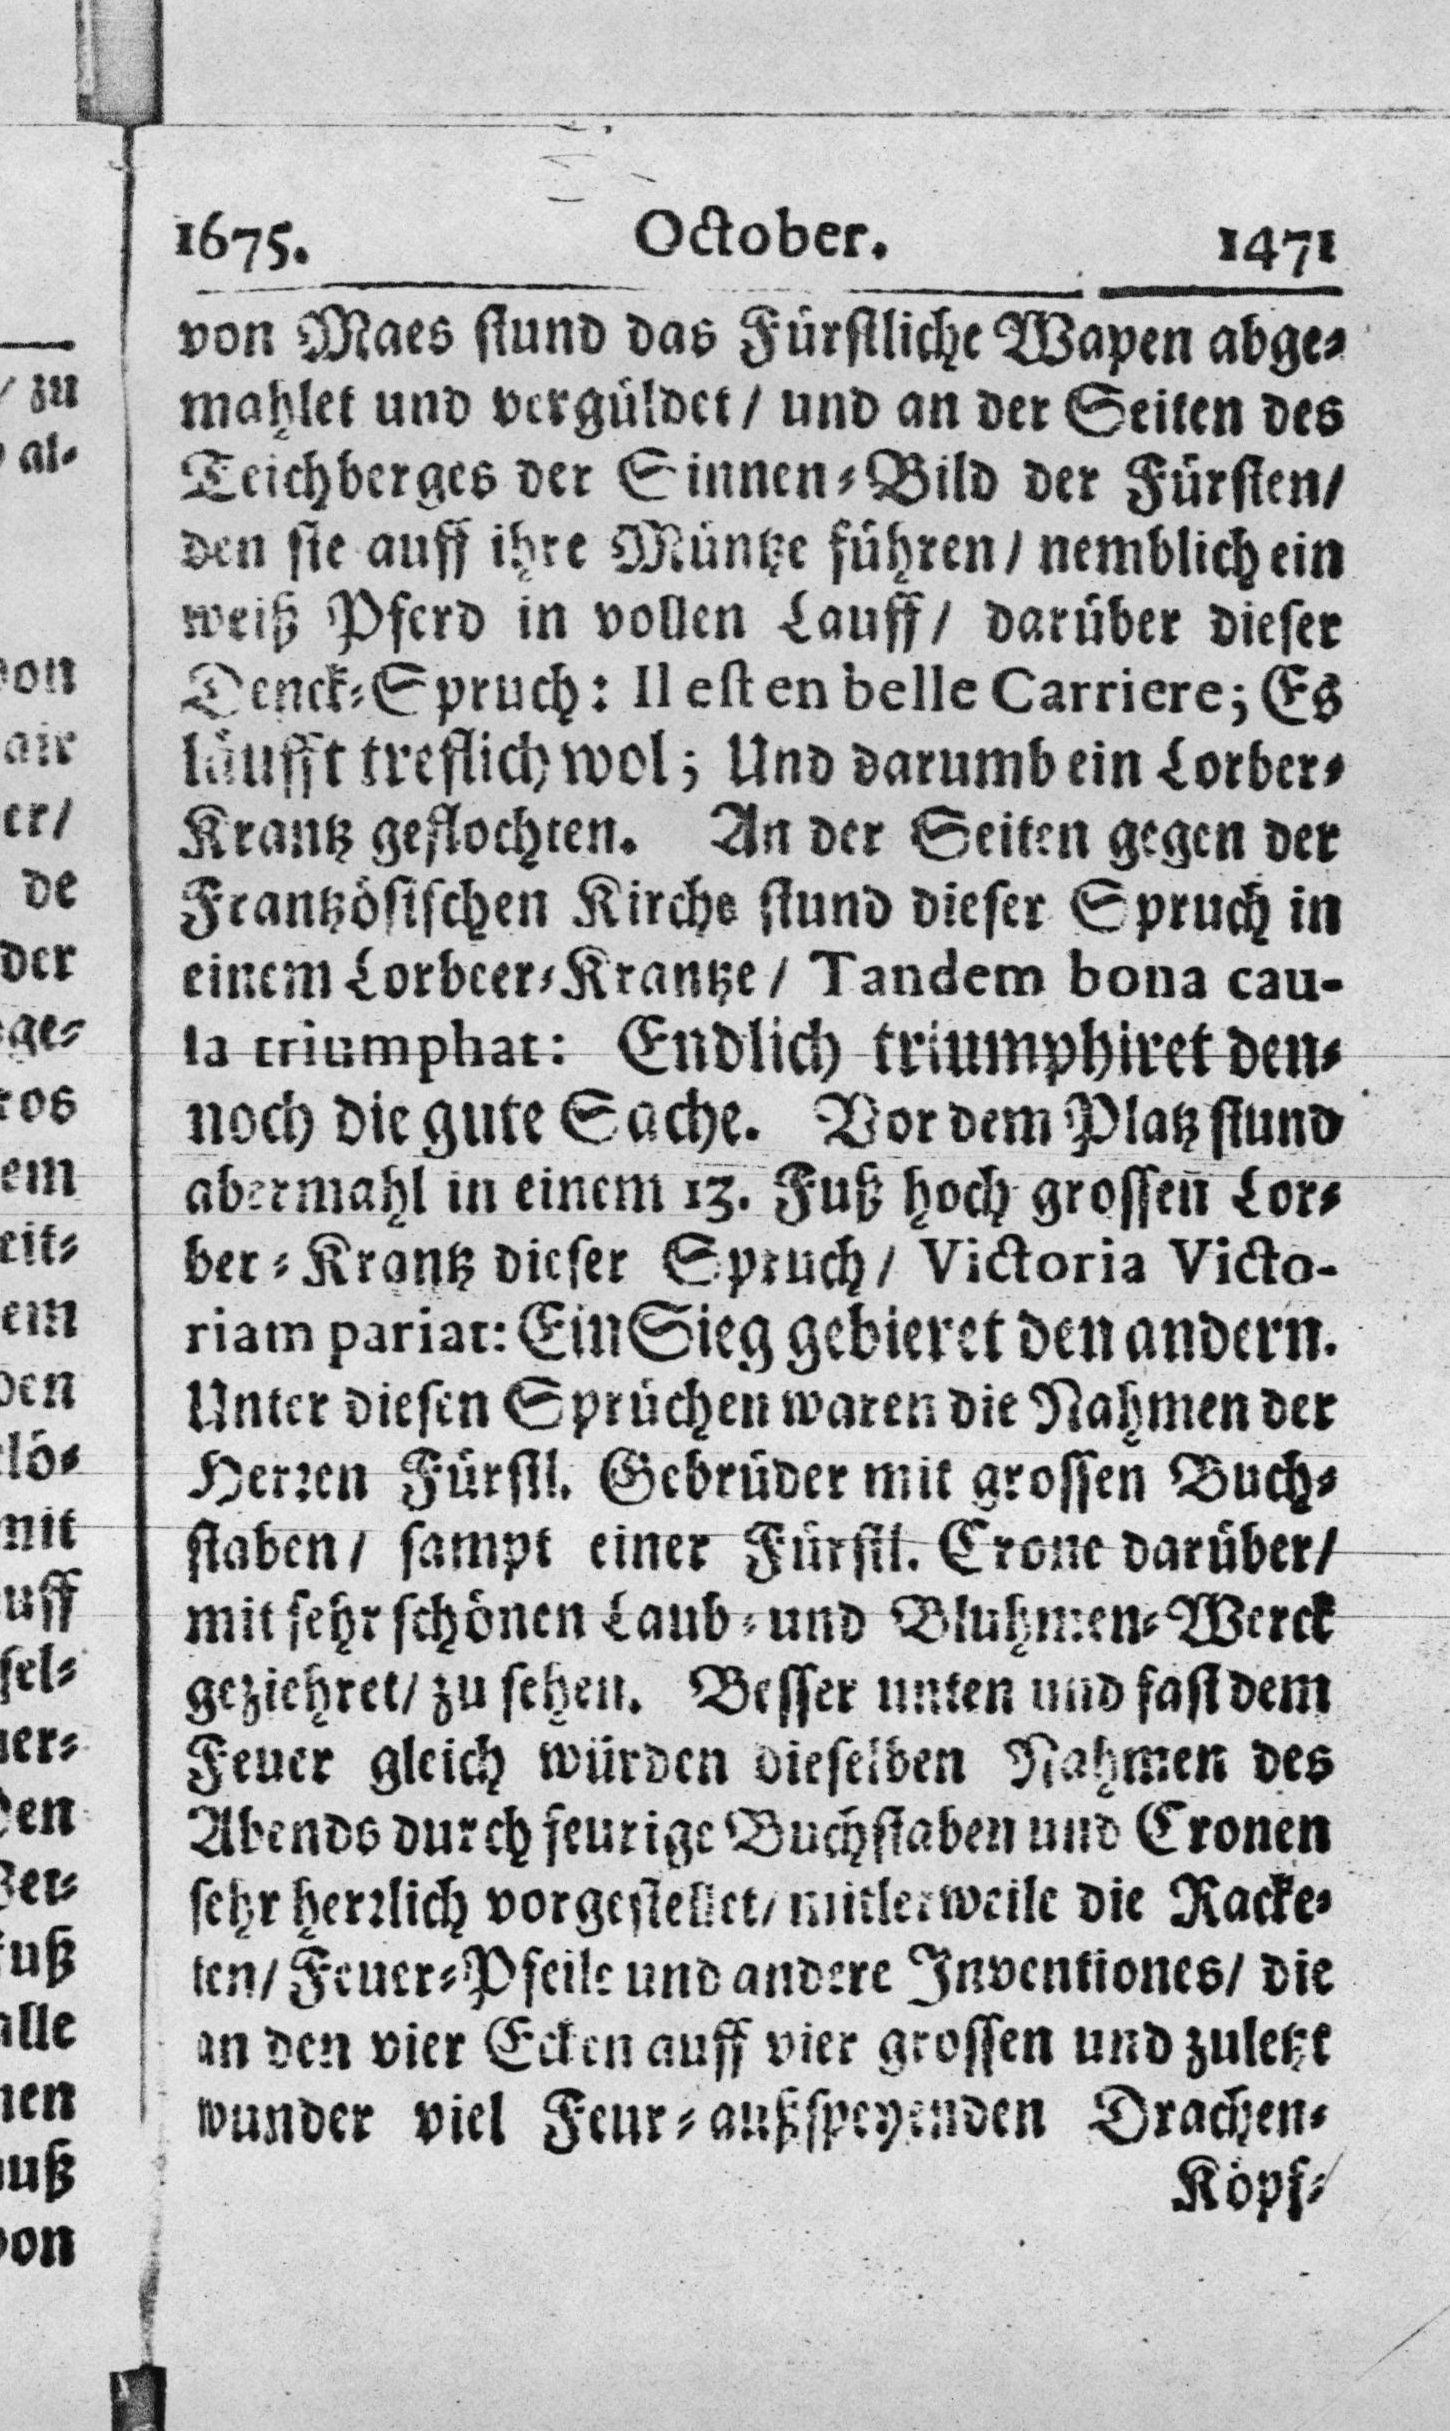 1675. October. 1471
von Maes stund das Fürstliche Wapen abge-
mahlet und vergüldet / und an der Seiten des
Teichberges der Sinnen-Bild der Fürsten /
den sie auff ihre Müntze führen / nemblich ein
weiß Pferd in vollen Lauff / darüber dieser
Denck-Spruch: Il est en belle Carriere; Es
läufft treflich wol; Und darumb ein Lorber-
Krantz geflochten. An der Seiten gegen der
Frantzösischen Kirche stund dieser Spruch in
einem Lorbeer-Krantze / Tandem bona cau-
sa triumphat: Endlich triumphiret den-
noch die gute Sache. Vor dem Platz stund
abermahl in einem 13. Fuß hoch grossen Lor-
ber-Krantz dieser Spruch / Victoria Victo-
riam pariat: Ein Sieg gebieret den andern.
Unter diesen Sprüchen waren die Nahmen der
Herren Fürstl. Gebrüder mit grossen Buch-
staben / sampt einer Fürstl. Crone darüber /
mit sehr schönen Laub- und Bluhmen-Werck
geziehret / zu sehen. Besser unten und fast dem
Feuer gleich würden dieselben Nahmen des
Abends durch feurige Buchstaben und Cronen
sehr herrlich vorgestellet / mitlerweile die Racke-
ten / Feuer-Pfeile und andere Inventiones / die
an den vier Ecken auff vier grossen und zuletzt
wunder viel Feur-außspeyenden Drachen-
Köpf-
/ zu
al-
von
air
er/
de
der
ge-
ros
em
eit-
em
den
lö-
mit
uff
sel-
er-
den
er-
fuß
alle
nen
uß
von